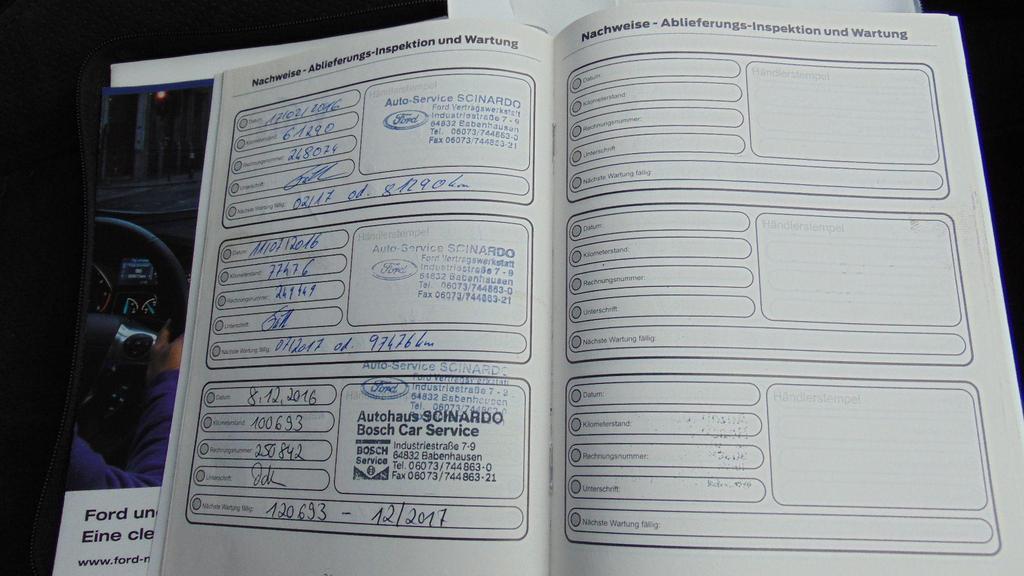 Nachweise - Ablieferungs-Inspektion und Wartung
Datum: 12/02/2016
Kilometerstand: 61290
Rechnungsnummer: 248074
Unterschrift:
Nächste Wartung fällig: 02/17 od. 81290 km
Händlerstempel
Auto-Service SCINARDO
Ford
Ford Vertragswerkstatt
Industriestraße 7 - 9
64832 Babenhausen
Tel. 06073/744863-0
Fax 06073/744863-21
Datum:
Kilometerstand: 77476
Rechnungsnummer: 249449
Unterschrift:
Nächste Wartung fällig: 07/2017 od. 97476 km
Händlerstempel
Auto-Service SCINARDO
Ford
Ford Vertragswerkstatt
Industriestraße 7 - 9
64832 Babenhausen
Tel. 06073/744863-0
Fax 06073/744863-21
Datum: 8.12.2016
Kilometerstand: 100693
Rechnungsnummer: 250842
Unterschrift:
Nächste Wartung fällig: 120693 - 12/2017
Auto-Service SCINARDO
Ford
Ford Vertragswerkstatt
Industriestraße 7 - 9
64832 Babenhausen
Autohaus SCINARDO
Bosch Car Service
BOSCH
Service
Industriestraße 7-9
64832 Babenhausen
Tel. 06073/744863-0
Fax 06073/744863-21
Nachweise - Ablieferungs-Inspektion und Wartung
Datum:
Kilometerstand:
Rechnungsnummer:
Unterschrift:
Nächste Wartung fällig:
Händlerstempel
Datum:
Kilometerstand:
Rechnungsnummer:
Unterschrift:
Nächste Wartung fällig:
Händlerstempel
Datum:
Kilometerstand:
Rechnungsnummer:
Unterschrift:
Nächste Wartung fällig:
Händlerstempel
Ford un
Eine cle
www.ford-